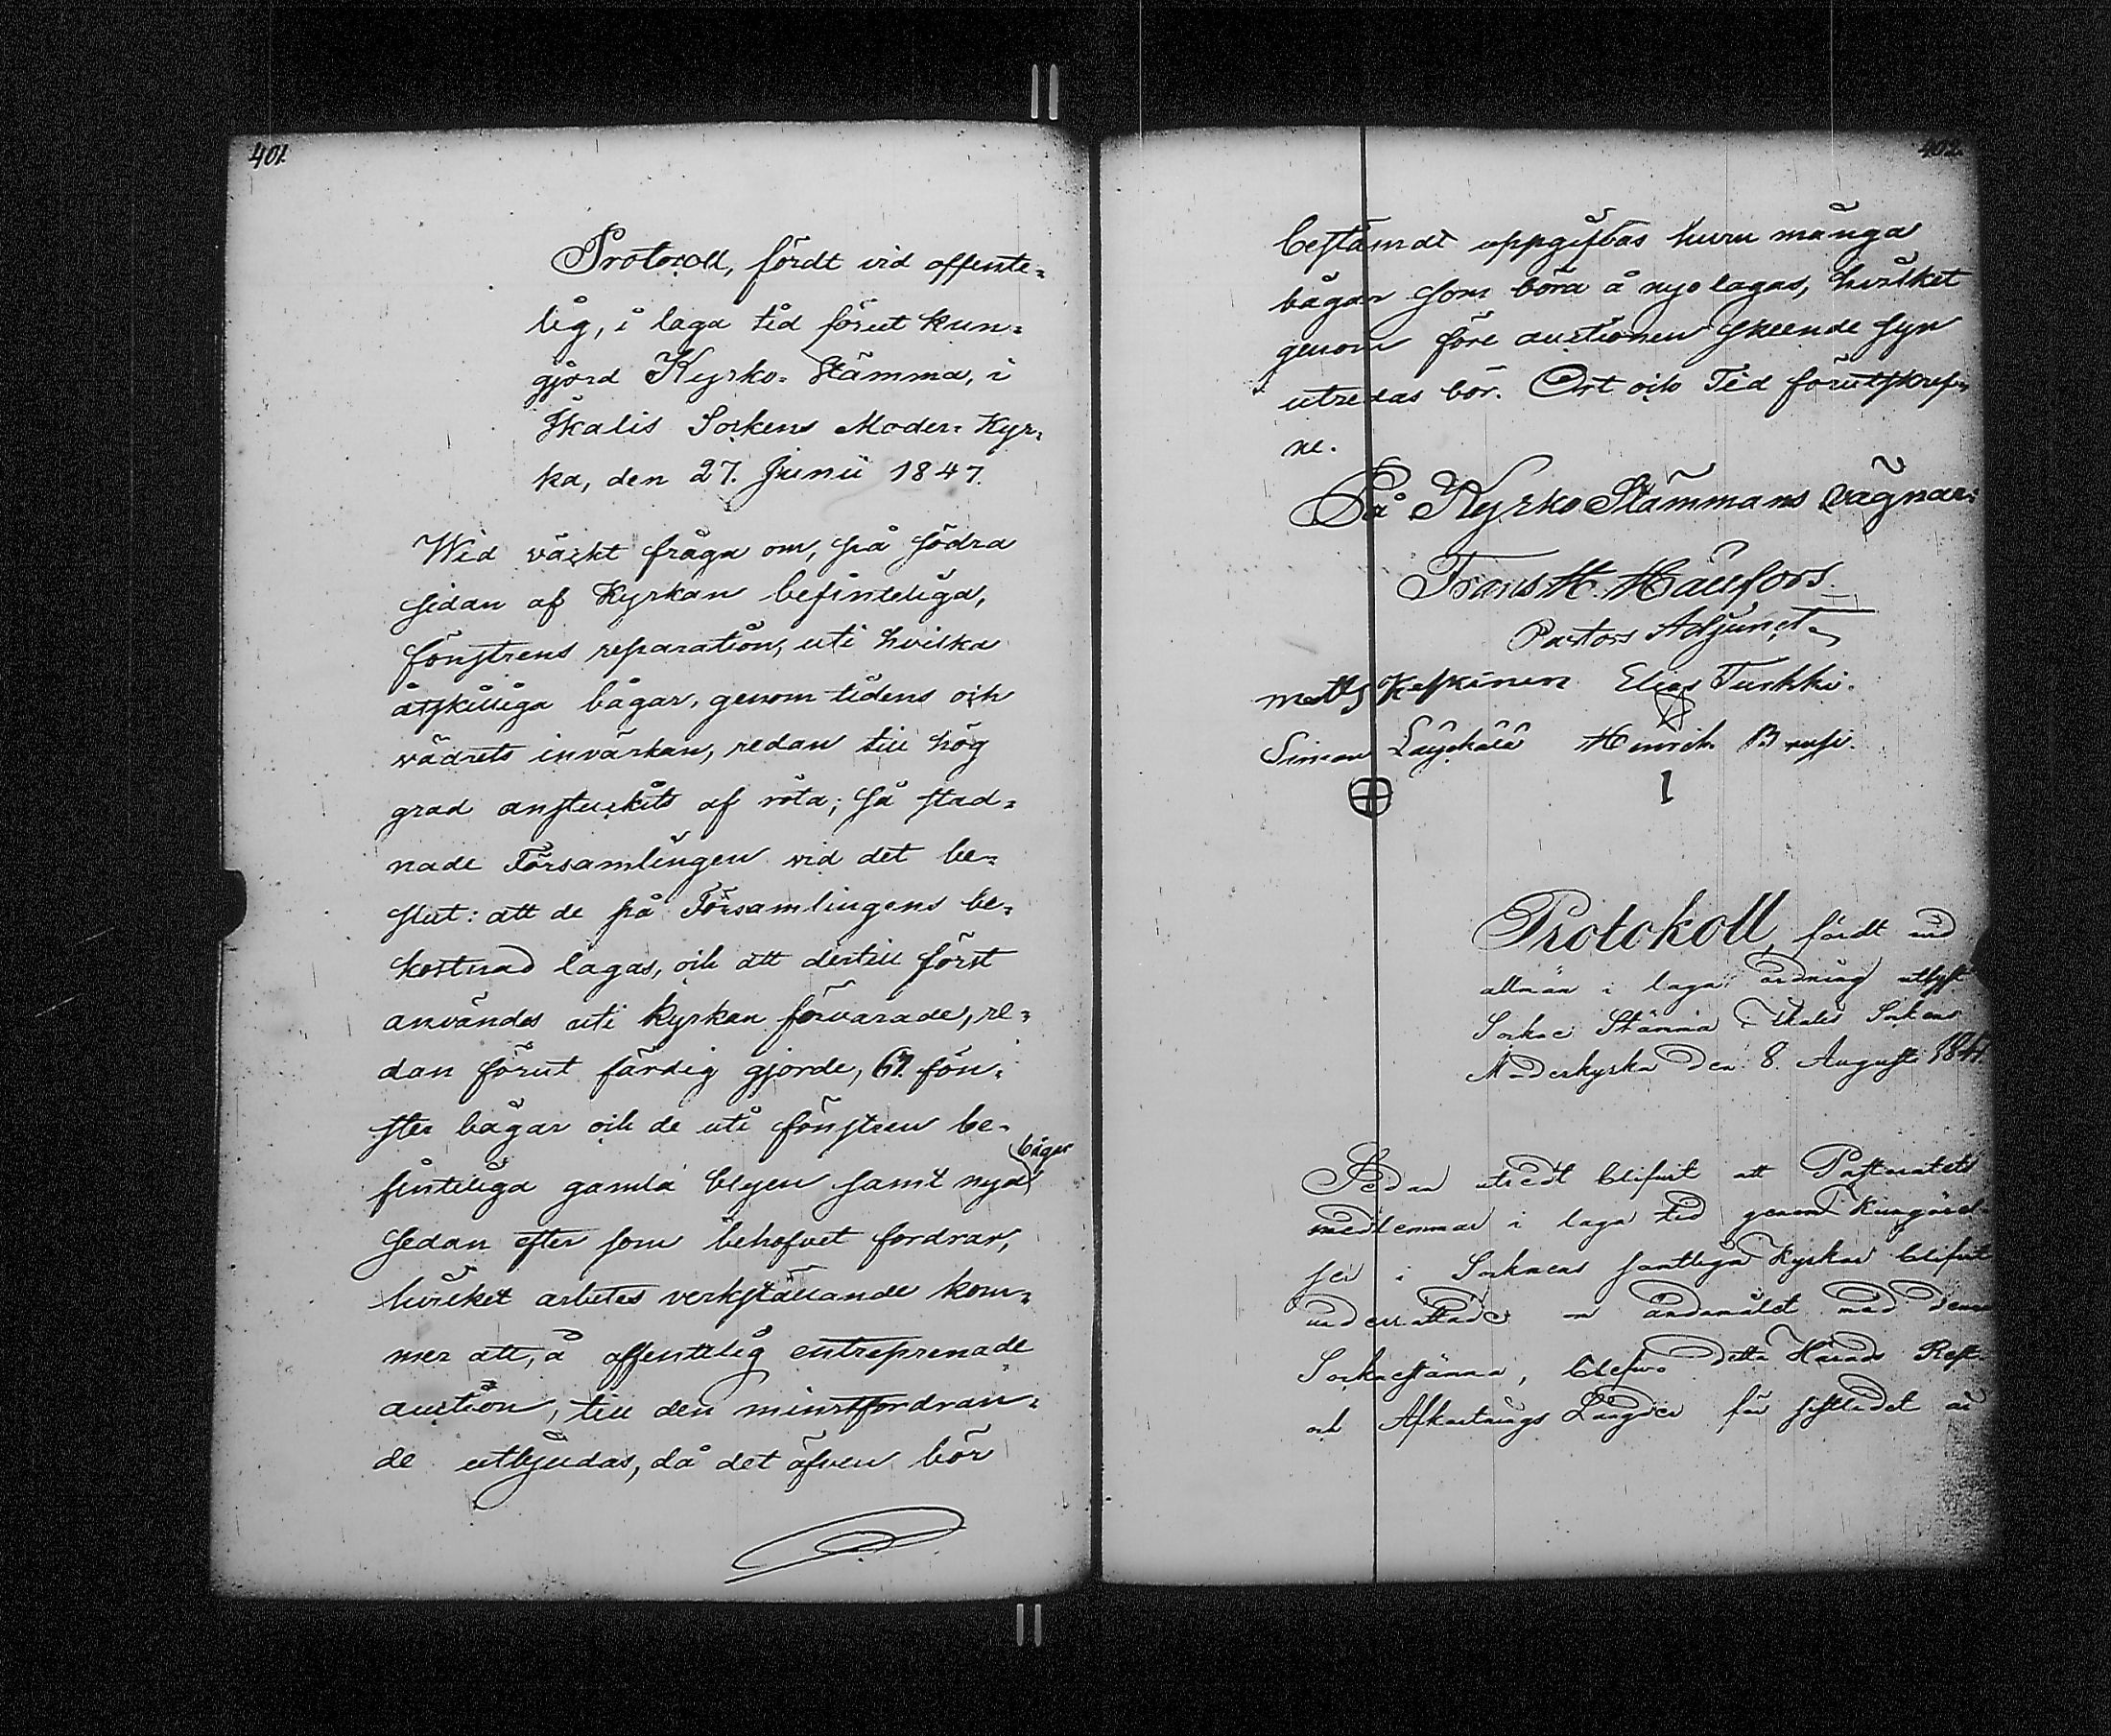 401.
Protocoll, fördt vid offente=
lig, i laga tid förut kun=
gjord Kyrko= Stämma, i
Ikalis Sockens Moder= Kyr=
ka, den 27. Junii 1847.
Wid väckt fråga om, på södra
sidan af Kyrkan befinteliga,
fönstrens reparation, uti hvilka
åtskilliga bågar, genom tidens och
vädrets invärkan, redan till hög
grad anstuckits af röta; så stad=
nade Församlingen vid det be=
slut: att de på Församlingens be=
kostnad lagas, och att dertill först
användes uti kyrkan förvarade, re=
dan förut färdig gjorde, 67. fön=
ster bågar och de uti fönstren be=
finteliga gamla blyen samt nya bågar
sedan efter som behofvet fordrar,
hvilket arbetes verkställande kom=
mer att, å offentelig entreprenade
auction, till den minstfordran=
de utbjudas, då det äfven bör
402.
bestämdt uppgifvas huru många
bågar som böra å nyo lagas, hvilket
genom före auctionen skeende syn
utredas bör. Ort och Tid förutskref=
ne.
På Kyrko Stämmans vägnar:
Frans H.
Pastors Adjunct.
Matts Keskinen Elias Turkki.
Simon Henrich
Protokoll, fördt vid
allmän i laga ordning utlyst
Sockne Stämma i Ikalis Sockens
Moderkyrka den 8. Augusti 1847.
Sedan utredt blifvit att Pastoratets
medlemmar i laga tid genom Kungörel=
ser i Socknens samtliga Kyrkor blifvit
underrättade om ändamålet med denna
Socknestämma, blefvo detta Härads Rest=
och Afkortnings Längder för sistledet år